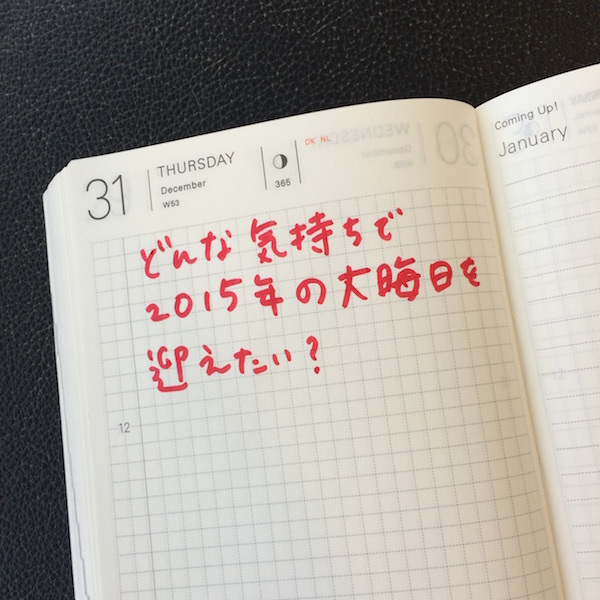 31
THURSDAY
December
W53
365
DK NL
Coming Up!
January
どんな気持ちで
2015年の大晦日を
迎えたい?
12